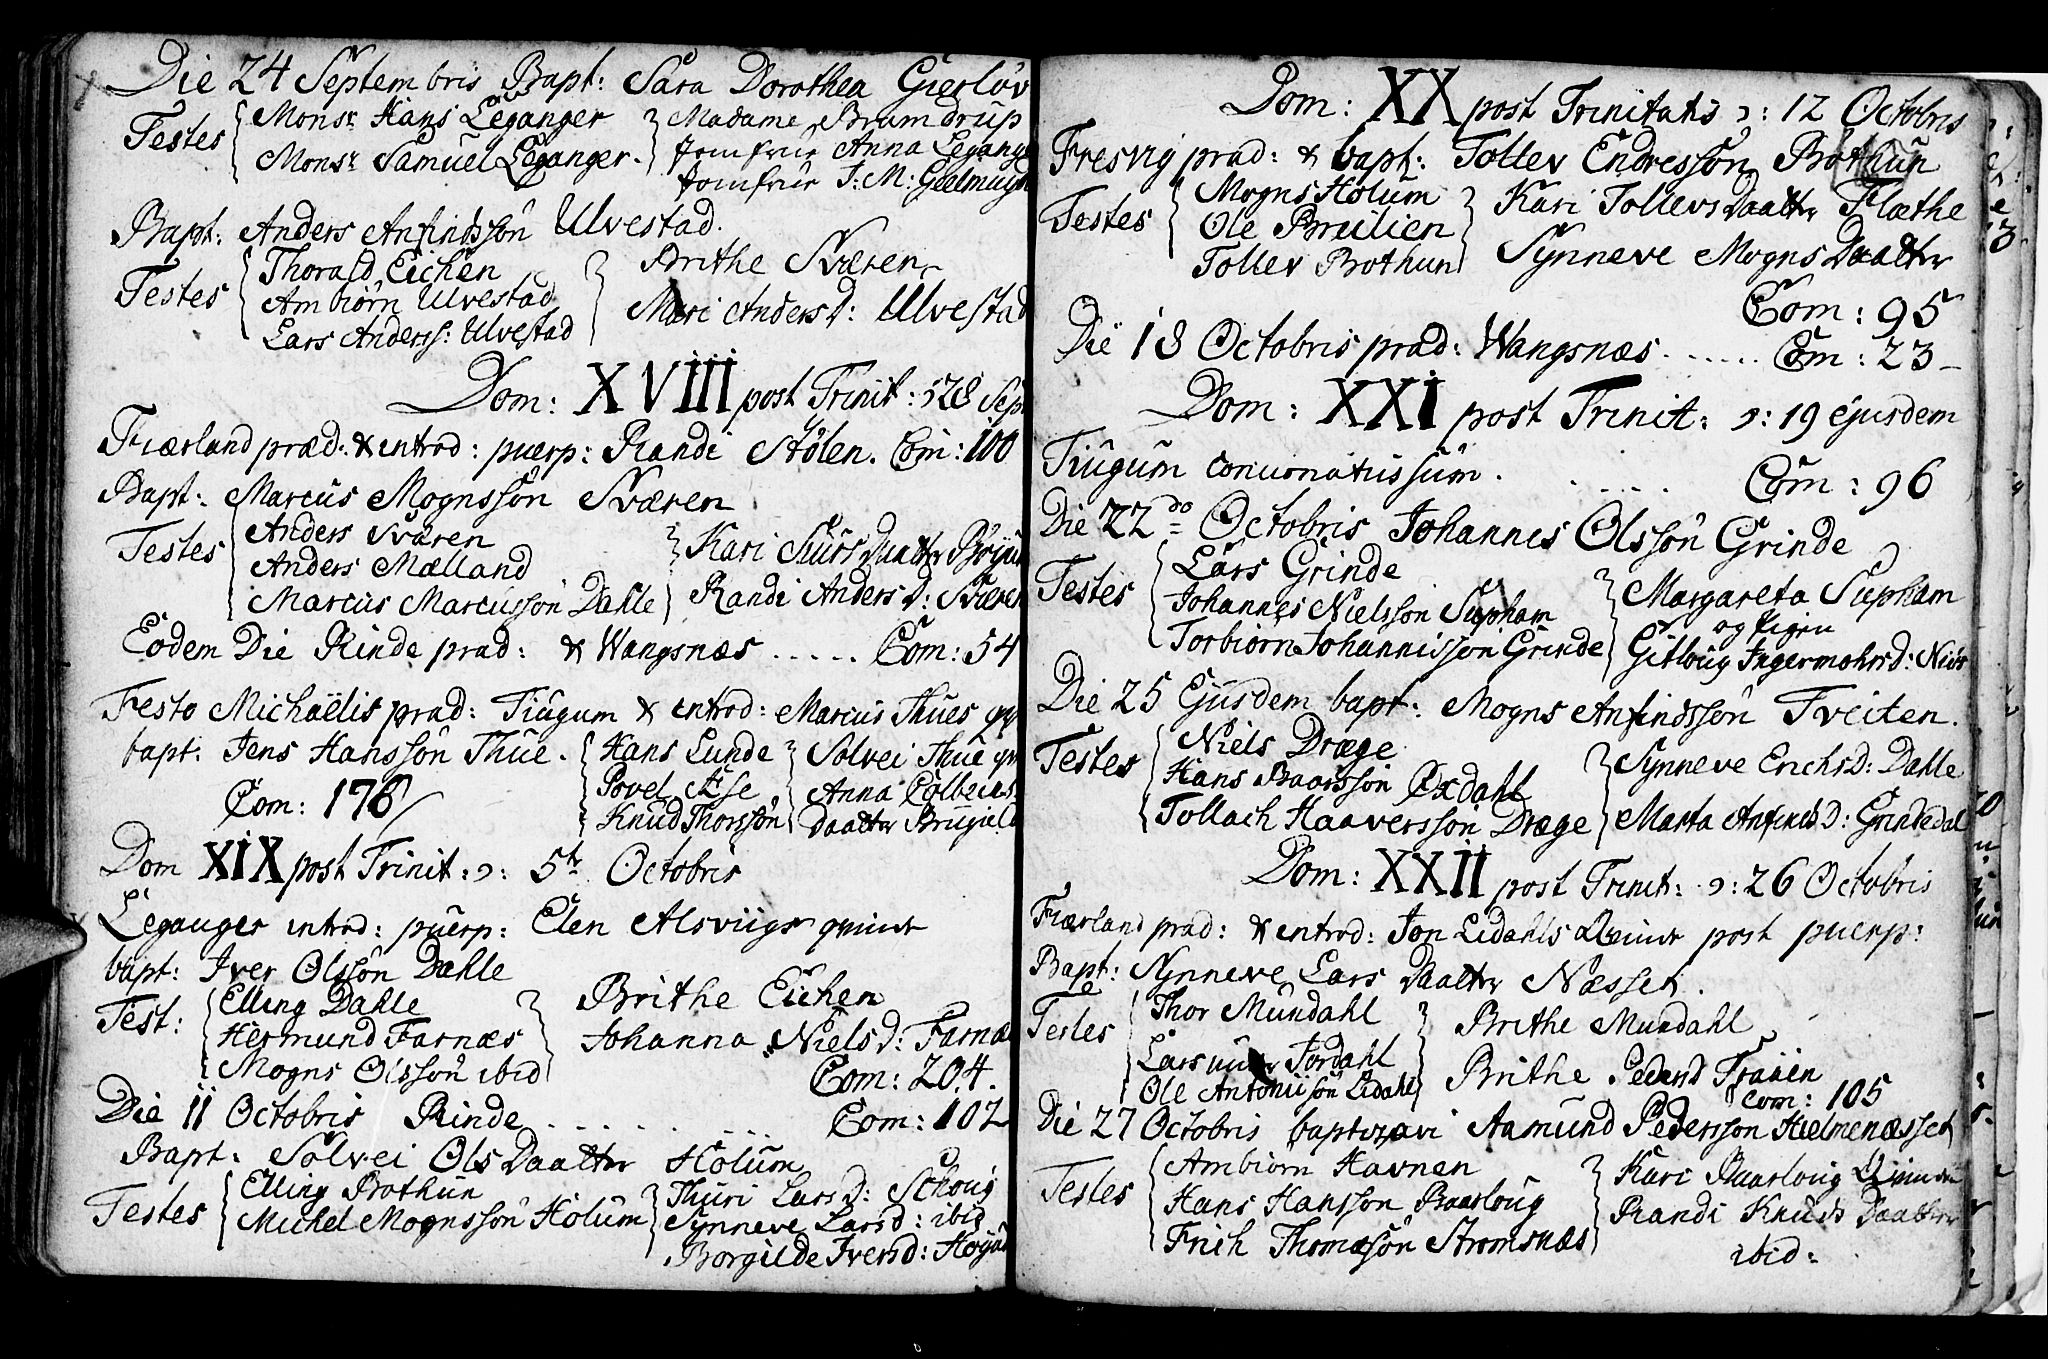 Die 24 Septembris Bapt: Sara Dorothea Gierløv
Testes Monsr Hans Leganger
Monsr Samuel Leganger.
Madame Bramdrup
Jomfrue Anna Legange
Jomfrue J: M: Gielmuyd
Bapt: Anders Anfindssøn Ulvestad.
Testes Thorald Eichen
Ambiørn Ulvestad
Lars Anderss: Ulvestad
Brithe Sværen
Mari Anders D: Ulvestad
Dom: XVIII post Trinit: 28 Sept
Fiærland præd: & introd: puerp: Randi Stølen. Com: 100
Bapt: Marcus Mognssøn Sværen
Testes Anders Sværen
Anders Mælland
Marcus Marcussøn Dahle
Kari Siurs Daatter
Randi Anders D: Sværen
Eodem Die Rinde præd: & Wangsnæs ..... Com: 54
Festo Michaëlis præd: Tiugum & introd: Marcus Thues
bapt: Jens Hanssøn Thue.
Hans Lunde
Povel Ese
Knud Thorssøn
Solvei Thue
Anna
Daatter
Com: 176
Dom XIX post Trinit: ɔ: 5te Octobris
Leganger introd: puerp: Elen Alsviigs qvinde
bapt: Iver Olssøn Dahle
Test: Elling Dahle
Hermund Farnæs
Mogns Olssøn ibid
Brithe Eichen
Johanna Niels D: Farnæs
Com: 204.
Die 11 Octobris Rinde ........ Com: 102
Bapt. Solvei Ols Daatter Holum
Testes Elling Bothun
Michel Mognssøn Holum
Thuri Lars D: Schoug
Synneve Larsd: ibid
Borgilde Iversd:
Dom: XX post Trinitatis ɔ: 12 Octobris
Fresvig præd: & bapt: Tollev Endressøn Bothun
Testes Mogns Holum
Ole Brulien
Tollev Bothun
Kari Tollevs Daatter Flæthe
Synneve Mogns Daatter
Com: 95
Die 18 Octobris præd: Wangsnæs ...... Com: 23
Dom: XXI post Trinit: ɔ: 19 ejusdem
Tiugum concionatus sum. ..... Com: 96
Die 22do Octobris Johannes Olssøn Grinde
Testes Lars Grinde
Johannes Nielssøn Supham
Torbiørn Johannissøn Grinde
Margareta Supham
og Pigen
Gitloug Ingermohrs d:
Die 25 Ejusdem bapt: Mogns Anfindssøn Tveiten.
Testes Niels Dræge
Hans Baarssøn Øxdahl
Tollach Haaverssøn Dræge
Synneve Erichs D: Dahle
Marta Anfinds D: Grindedal
Dom: XXII post Trinit: ɔ: 26 Octobris
Fiærland præd: & introd: Jon Lidahls Qvinde post puerp:
Bapt: Synneve Lars Daatter Næsset.
Testes Thor Mundahl
Lars Jordahl
Ole Antoniissøn Lidahl
Brithe Mundahl
Brithe Peders D
Com: 105
Die 27 Octobris baptizavi Aamund Pederssøn Hielmenæsset
Testes Ambiørn Havnen
Hans Hanssøn Baarloug
Erich Thomæsøn Strømsnæs
Kari Baarloug Qvinde
Randi Knuds Daatter
ibid: